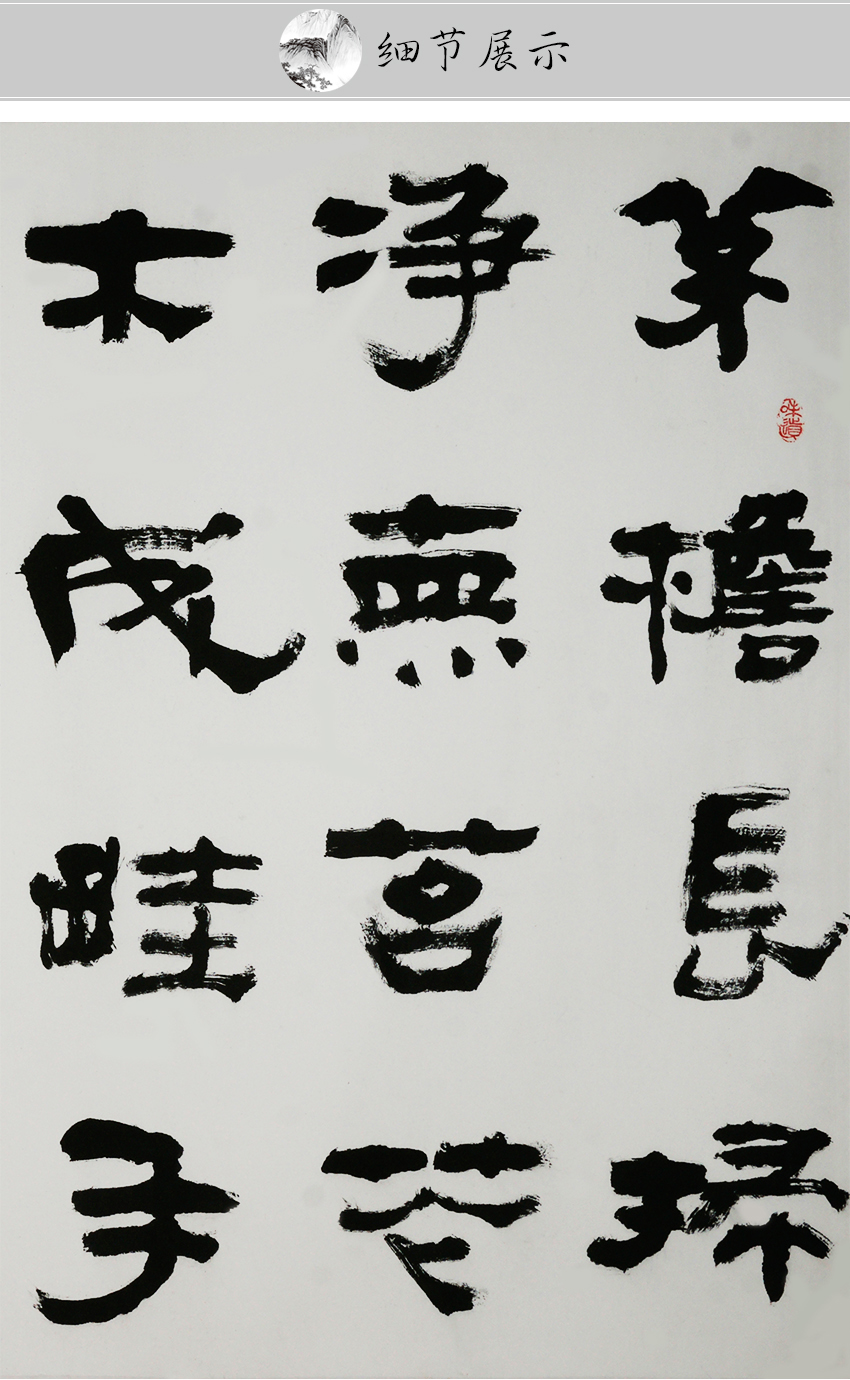 细节展示
茅檐長掃
净無苔花
木成畦手